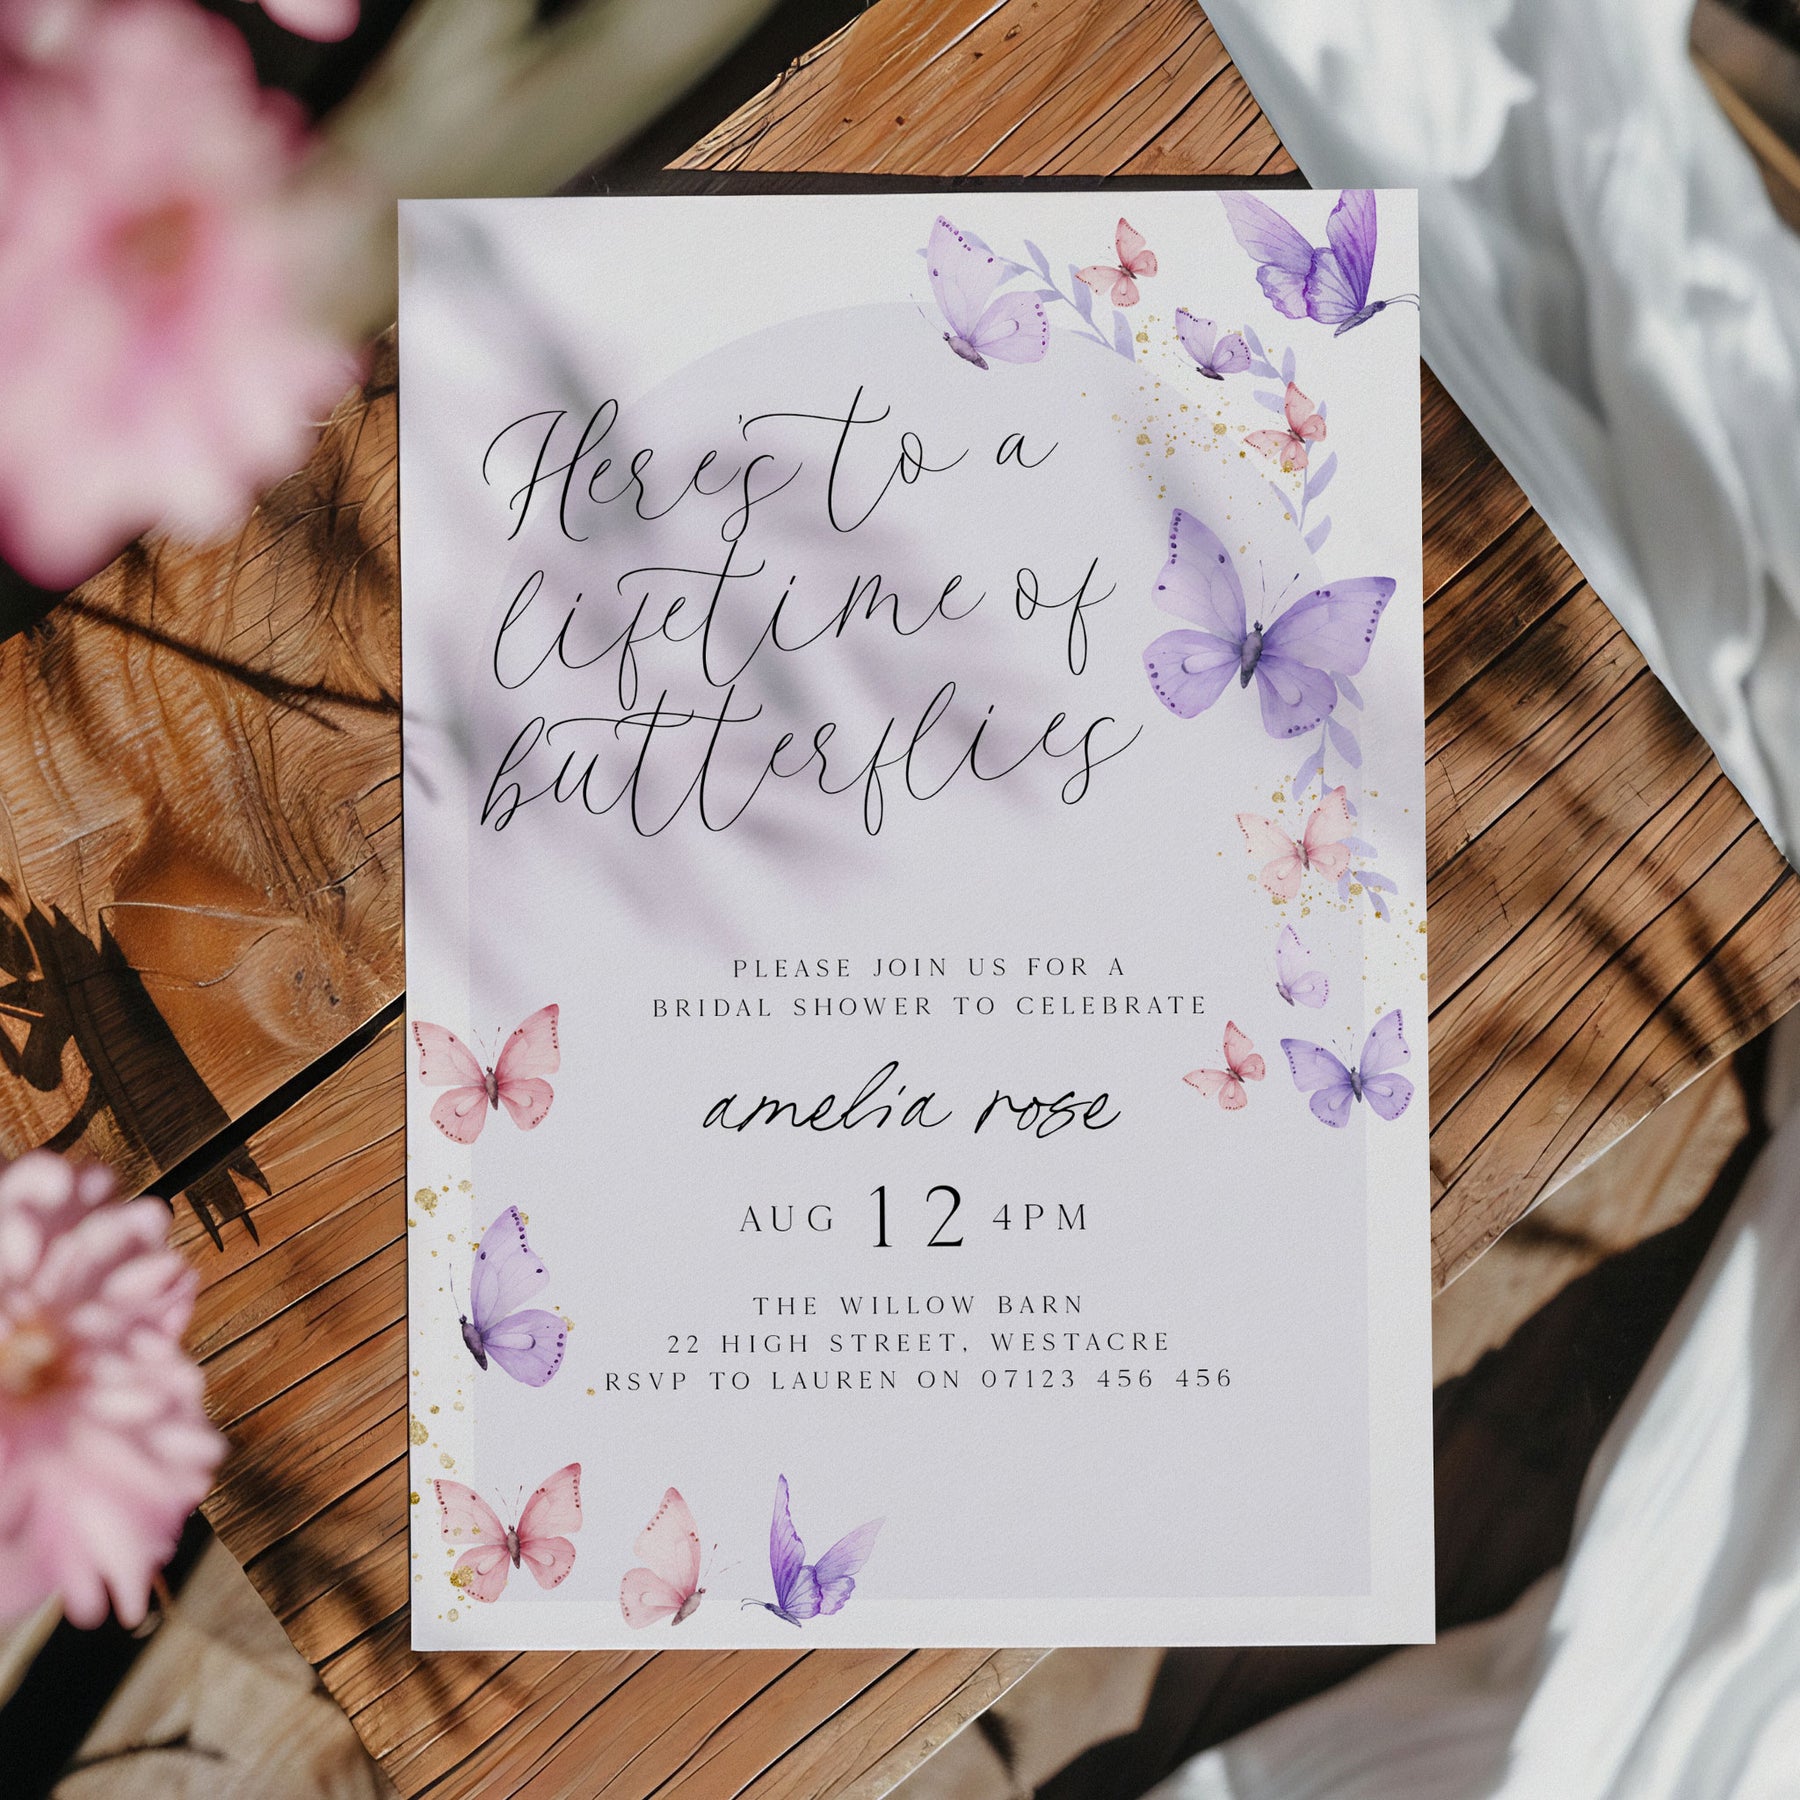 Here's to a
lifetime of
butterflies
PLEASE JOIN US FOR A
BRIDAL SHOWER TO CELEBRATE
amelia rose
AUG 12 4PM
THE WILLOW BARN
22 HIGH STREET, WESTACRE
RSVP TO LAUREN ON 07123 456 456